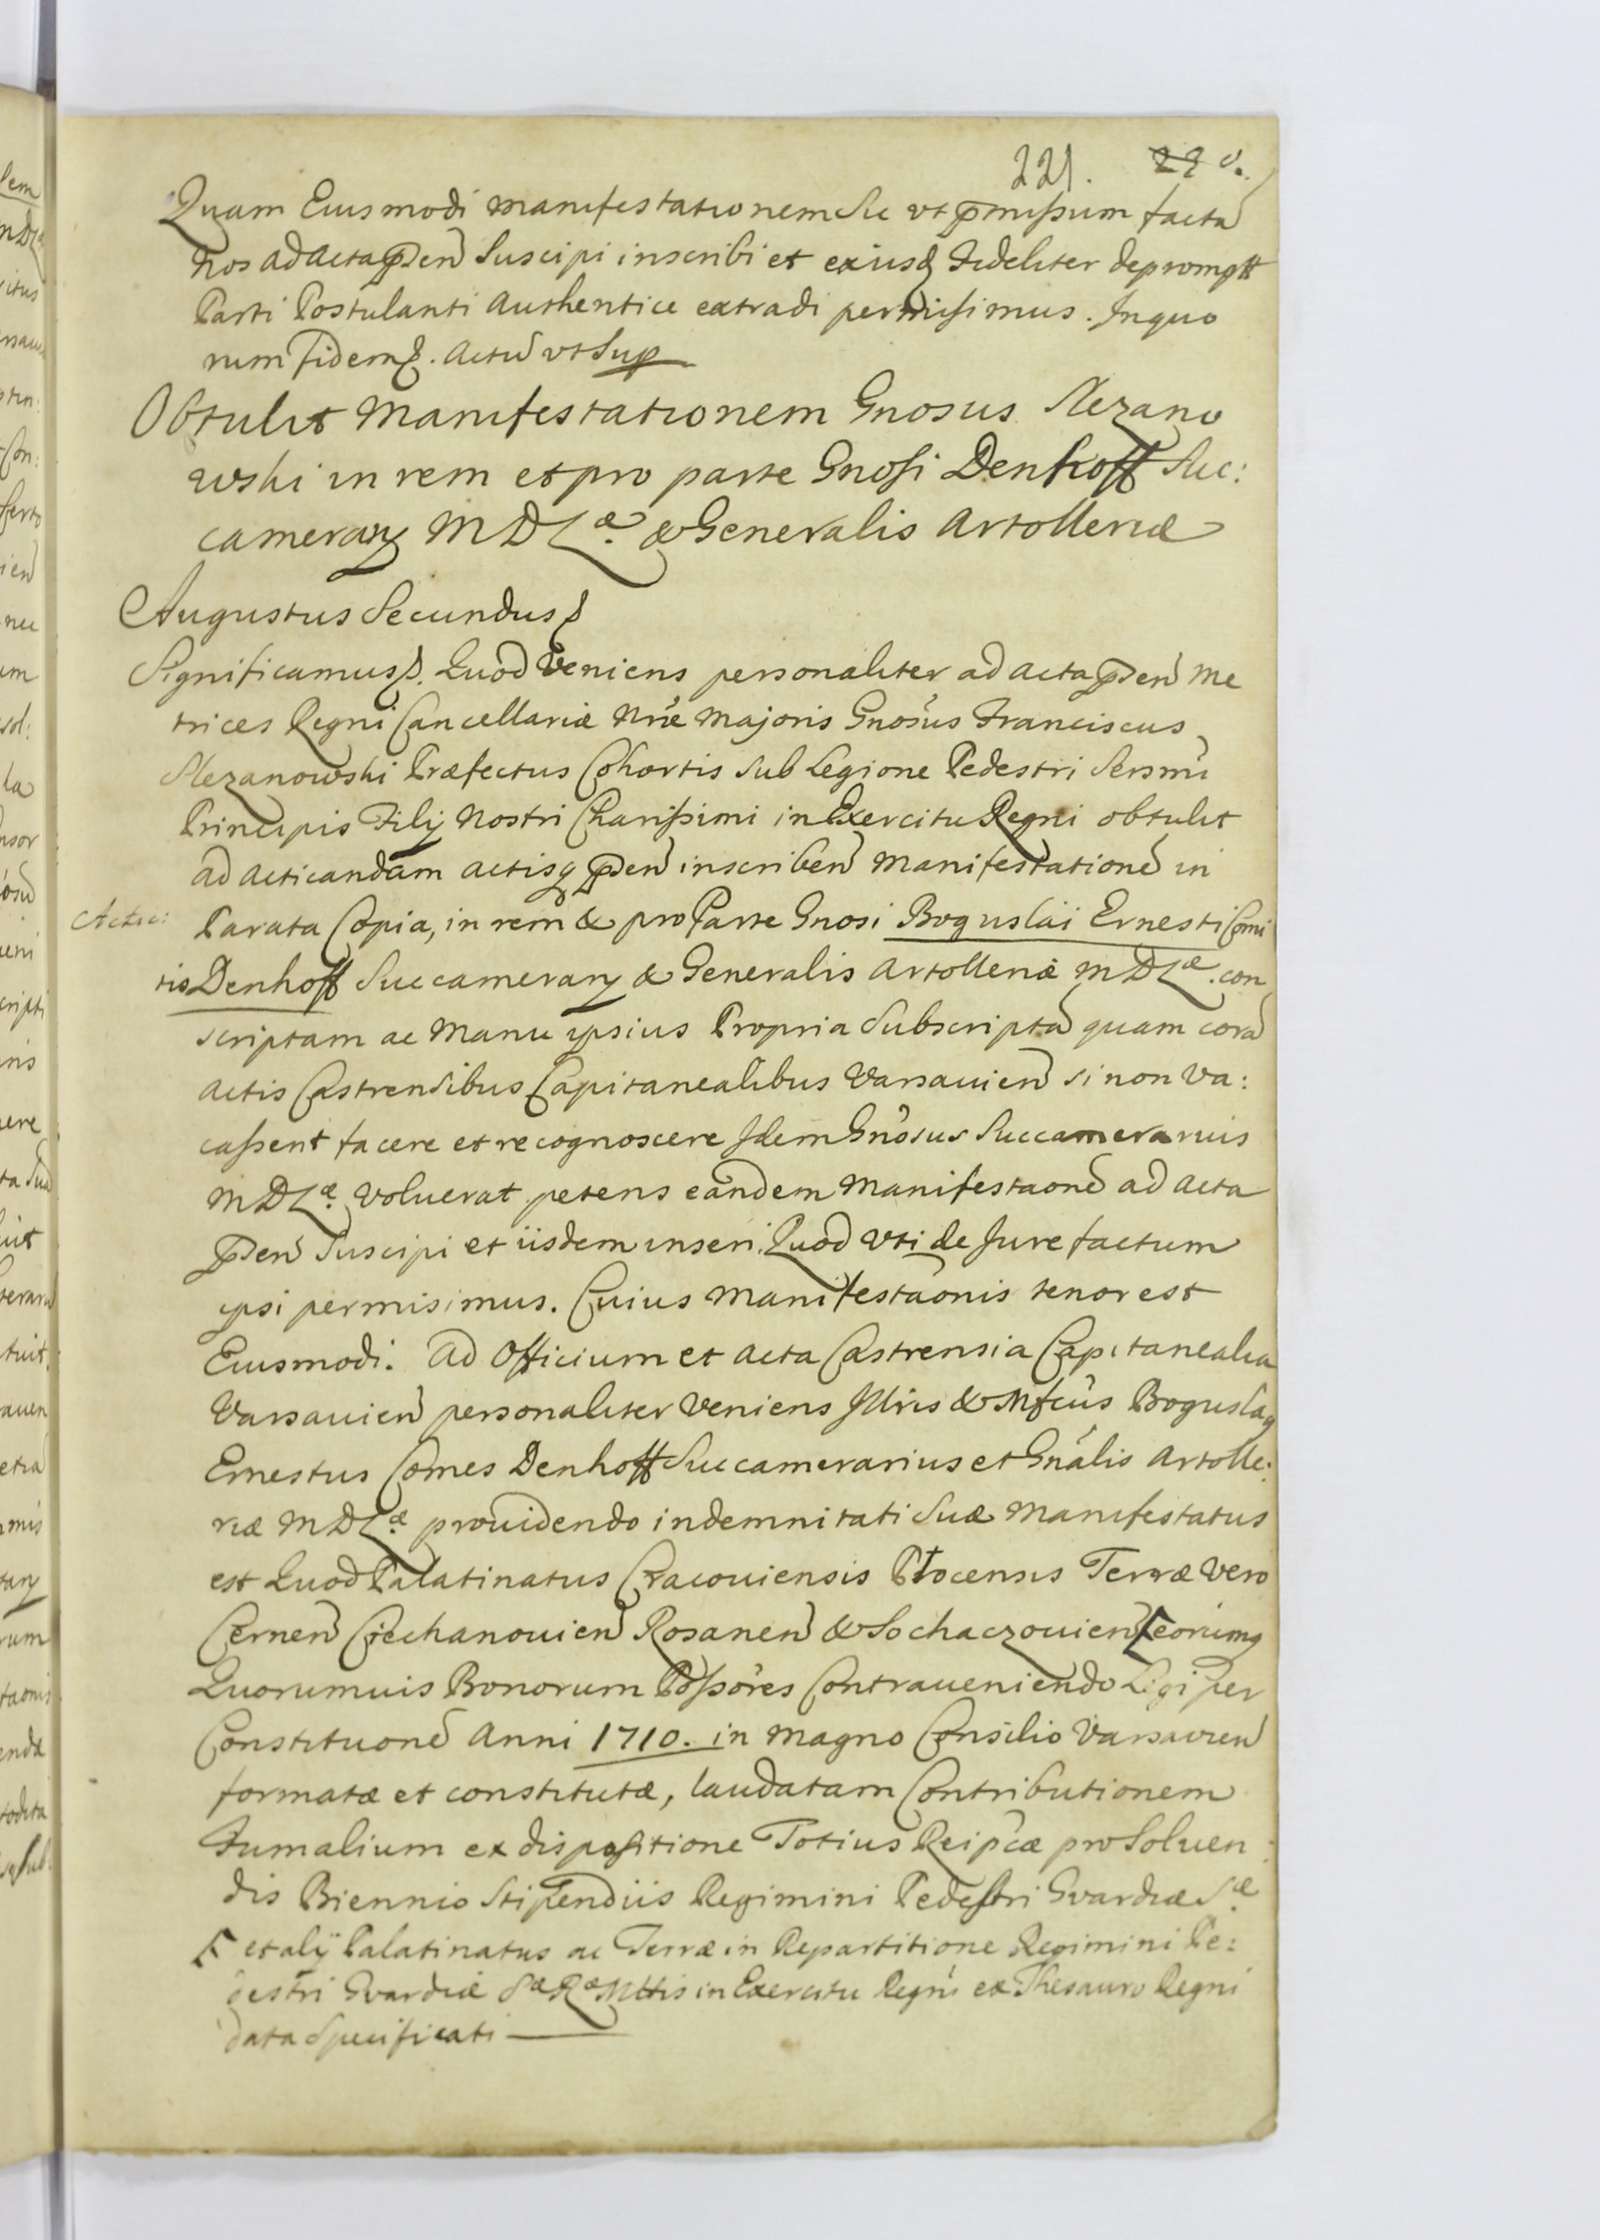 221. 22 v.
Quam Eiusmodi manifestationem Sic vt p̅missum factã
Nos ad Acta p̅sen̅ Suscipi inscribi et ex iisd̅ Fideliter deprompt̅
Parti Postulanti Authentice extradi permisimus. In quo
rum Fidem &. Actũ vt Sup̅
Obtulit Manifestationem Gnosus Slezano
wski in rem et pro parte Gnosi Denhoff Suc:
camerarij M D L.æ & Generalis Artolleriæ
Augustus Secundus &
Significamus &. Quod Veniens personaliter ad acta p̅sen̅ Me
trices Regni Cancellariæ Nrẽ Majoris Gnosus Franciscus
Slezanowski Præfectus Cohortis Sub Legione Pedestri Sersmi
Principis Filij Nostri Charissimi in Exercitu Regni obtulit
ad acticandam actisq p̅sen̅ inscriben̅ Manifestationẽ in
Actic: Parata Copia, in rem & pro Parte Gnosi Boguslai Ernesti Comi
tis Denhoff Succamerarij & Generalis Artolleriæ M D L.æ con
scriptam ac Manu ipsius Propria Subscriptã quam corã
actis Castrensibus Capitanealibus Varsavien̅ si non va:
cassent facere et recognoscere Idem Gnosus Succamerarius
M D L.æ Voluerat petens eandem Manifestaonẽ ad acta
p̅sen̅ Suscipi et iisdem inseri. Quod vti de Jure factum
ipsi permisimus. Cuius Manifestaonis tenor est
Eiusmodi. Ad Officium et Acta Castrensia Capitanealia
Varsauien̅ personaliter Veniens Illris & Mfcus Boguslaq
Ernestus Comes Denhoff Succamerarius et Gnalis Artolle:
riæ M D L.æ prouidendo indemnitati Suæ Manifestatus
est Quod Palatinatus Cracouiensis Plocensis Terræ vero
Cernen̅ Ciechanouien̅ Rosanen̅ & Sochaczouien̅ F eorumq
Quorumuis Bonorum Possores Contraueniendo Legi per
Constituonẽ Anni 1710. in Magno Consilio Varsauien̅
formatæ et constitutæ, laudatam Contributionem
Fumalium ex dispositione Totius Reipcæ pro Soluen
dis Biennio Stipendiis Regimini Pedestri Gvardiæ S.æ
F et alij Palatinatus ac Terræ in Repartitione Regimini Pe:
destri Gvardiæ S.æ R.æ Mttis in Exercitu Regni ex Thesauro Regni
data Specificati